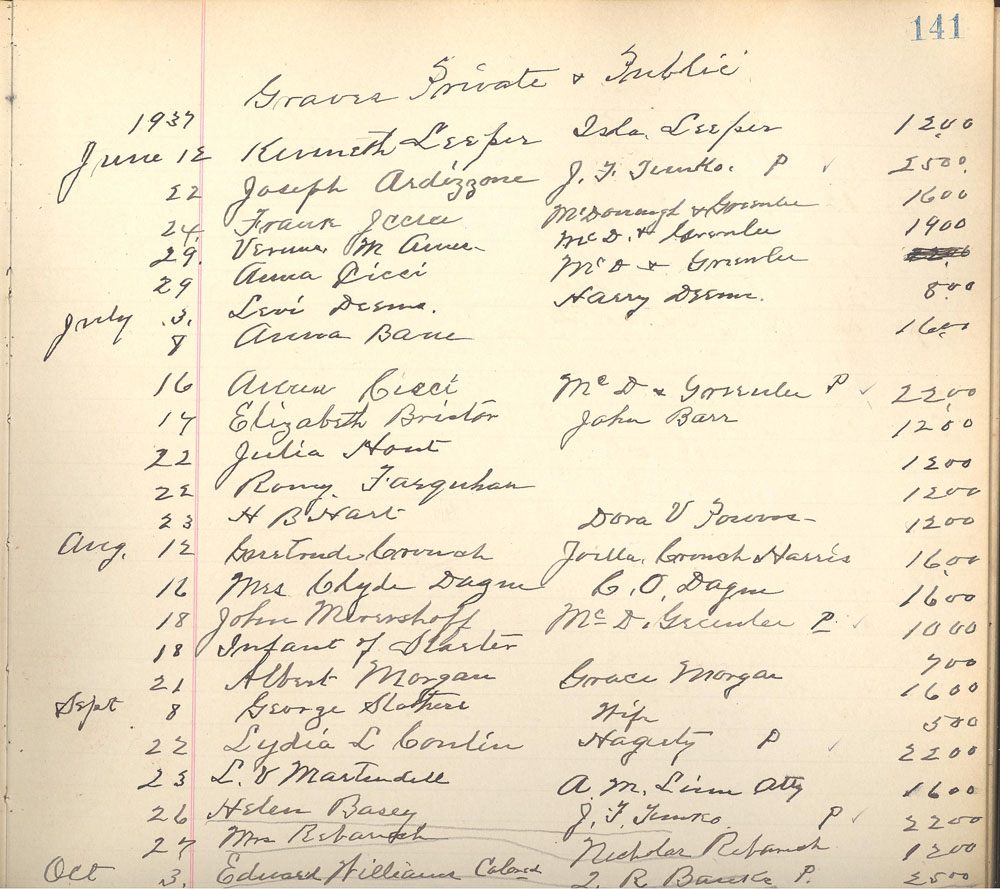 141
Graves Private & Public
1937
June 12 Kenneth Leeper Isla Leeper 1200
22 Joseph Ardizzone J. F. Temko. P ✓ 2500
24 Frank McDonough & Greenlee 1600
29. M McD. & Greenlee 1900
29 Anna Cicci McD & Greenlee
July 3. Levi Deems. Harry Deems. 800
8 Anna Bane 1600
16 Cicci McD & Greenlee P ✓ 2200
17 Elizabeth Bristor John Barr 1200
22 Julia Hout 1200
22 Romy Farquhar 1200
23 H B Hart Dora V 1200
Aug. 12 Gertrude Crouch Joella Crouch Harris 1600
16 Mrs Clyde Dague C. O. Dague 1600
18 John McD. Greenlee P ✓ 1000
18 Infant of Slaster 700
21 Albert Morgan Grace Morgan 1600
Sept 8 George Wife 500
22 Lydia L Conlin Hagerty P ✓ 2200
23 L. V Martindell A. M. Linn Atty 1600
26 Helen Basey J. F. Temko. P ✓ 2200
27 Mrs Nicholas 1200
Oct 3. Edward Williams Colored R Banks P. 2500